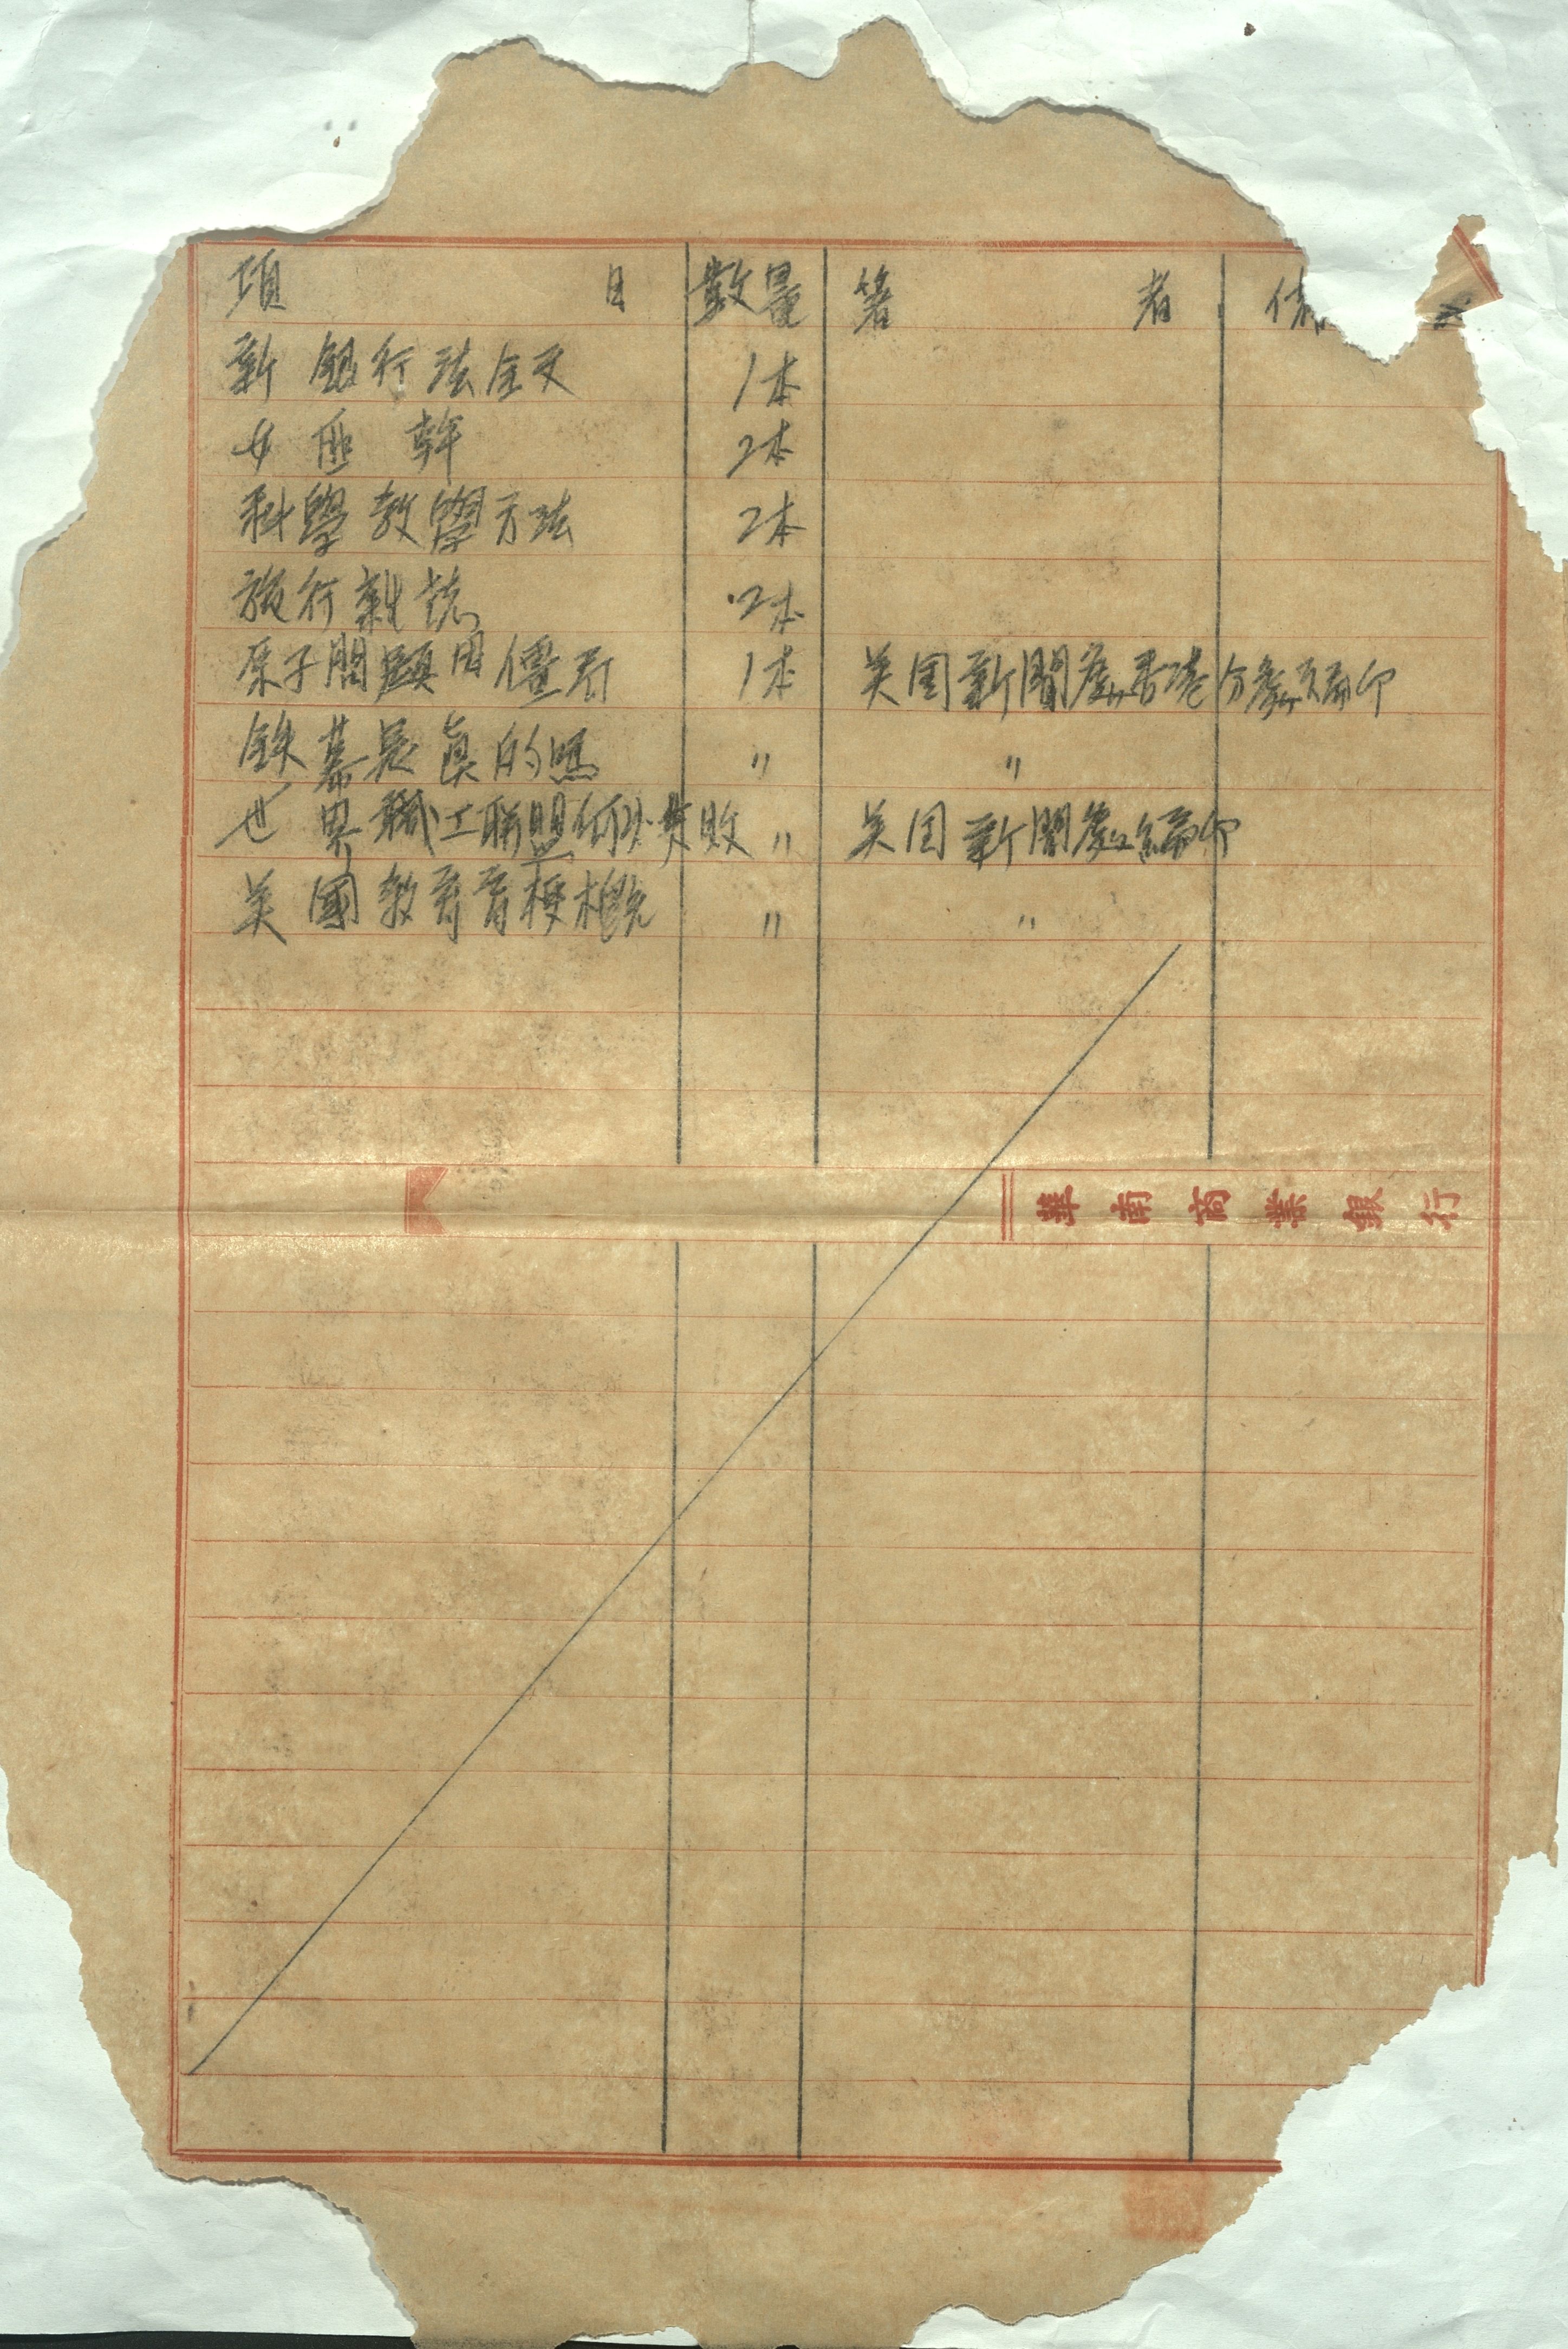 項目 數量 著者 備
新銀行法全文 1本
女匪幹 2本
科學教學方法 2本
旅行雜誌 2本
原子問題 1本 英国新聞處香港分處編印
鉄幕是真的嗎 〃 〃
世界職工聯盟何以失敗 〃 英国新聞處編印
英國教育育梗概 〃 〃
華南商業銀行